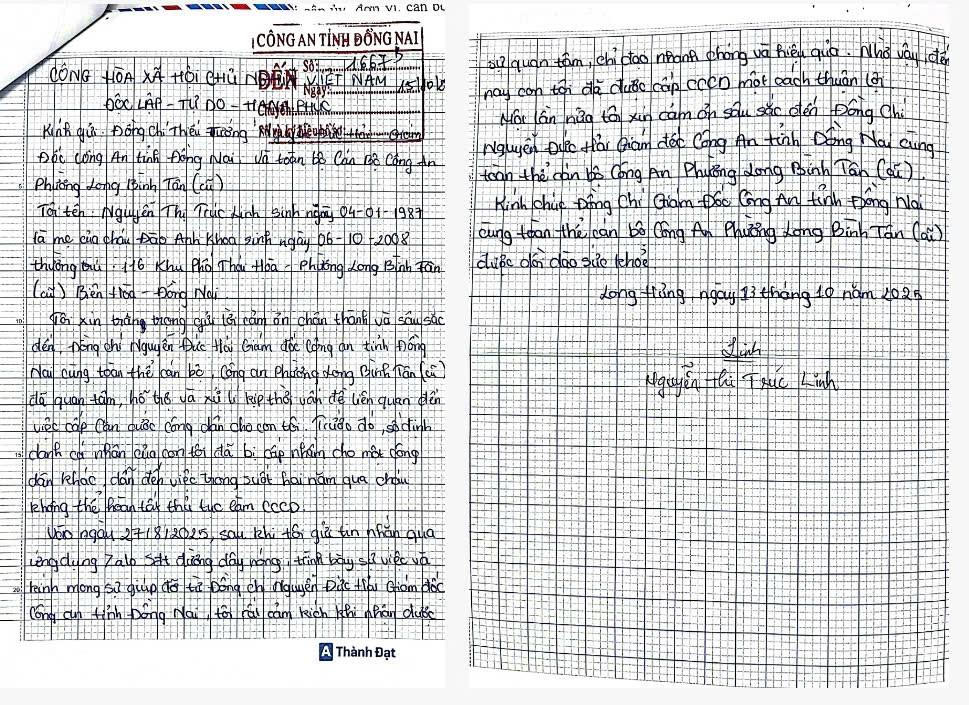 đơn vị, cán bộ
CÔNG AN TỈNH ĐỒNG NAI
Số: 16675
ĐẾN
Ngày: 15/10/2
Chuyển:
CỘNG HÒA XÃ HỘI CHỦ NGHĨA VIỆT NAM
ĐỘC LẬP - TỰ DO - HẠNH PHÚC
Kính gửi: Đồng chí Thiếu tướng Giám
Đốc Công An tỉnh Đồng Nai, và toàn bộ Cán Bộ Công An
Phường Long Bình Tân (cũ)
Tôi tên: Nguyễn Thị Trúc Linh sinh ngày 04-01-1987
là mẹ của cháu Đào Anh Khoa sinh ngày 06-10-2008
thường trú: 116 Khu Phố Thái Hòa - Phường Long Bình Tân
(cũ) Biên Hòa - Đồng Nai.
Tôi xin trân trọng gửi lời cảm ơn chân thành và sâu sắc
đến, Đồng chí Nguyễn Đức Hải Giám đốc Công an tỉnh Đồng
Nai cùng toàn thể cán bộ, Công an Phường Long Bình Tân (cũ)
đã quan tâm, hỗ trợ và xử lí kịp thời vấn đề liên quan đến
việc cấp Căn cước công dân cho con tôi. Trước đó, số định
danh cá nhân của con tôi đã bị cấp nhầm cho một công
dân khác, dẫn đến việc trong suốt hai năm qua cháu
không thể hoàn tất thủ tục làm CCCD.
Vào ngày 27/8/2025, sau khi tôi gửi tin nhắn qua
ứng dụng Zalo Sđt đường dây nóng, trình bày sự việc và
kính mong sự giúp đỡ từ Đồng chí Nguyễn Đức Hải Giám đốc
Công an tỉnh Đồng Nai, tôi rất cảm kích khi nhận được
Thành Đạt
sự quan tâm, chỉ đạo nhanh chóng và hiệu quả. Nhờ vậy, đến
nay con tôi đã được cấp CCCD một cách thuận lợi
Một lần nữa tôi xin cảm ơn sâu sắc đến Đồng Chí
Nguyễn Đức Hải Giám đốc Công An tỉnh Đồng Nai cùng
toàn thể cán bộ Công An Phường Long Bình Tân (cũ).
Kính chúc Đồng Chí Giám Đốc Công An tỉnh Đồng Nai
cùng toàn thể cán bộ Công An Phường Long Bình Tân (cũ)
được dồi dào sức khỏe
Long Hưng, ngày 13 tháng 10 năm 2025
Linh
Nguyễn Thị Trúc Linh